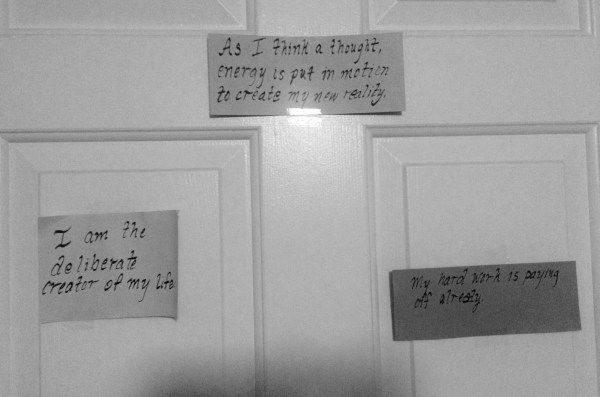 As I think a thought,
energy is put in motion
to create my new reality.
I am the
deliberate
creator of my life
My hard work is paying
off already.